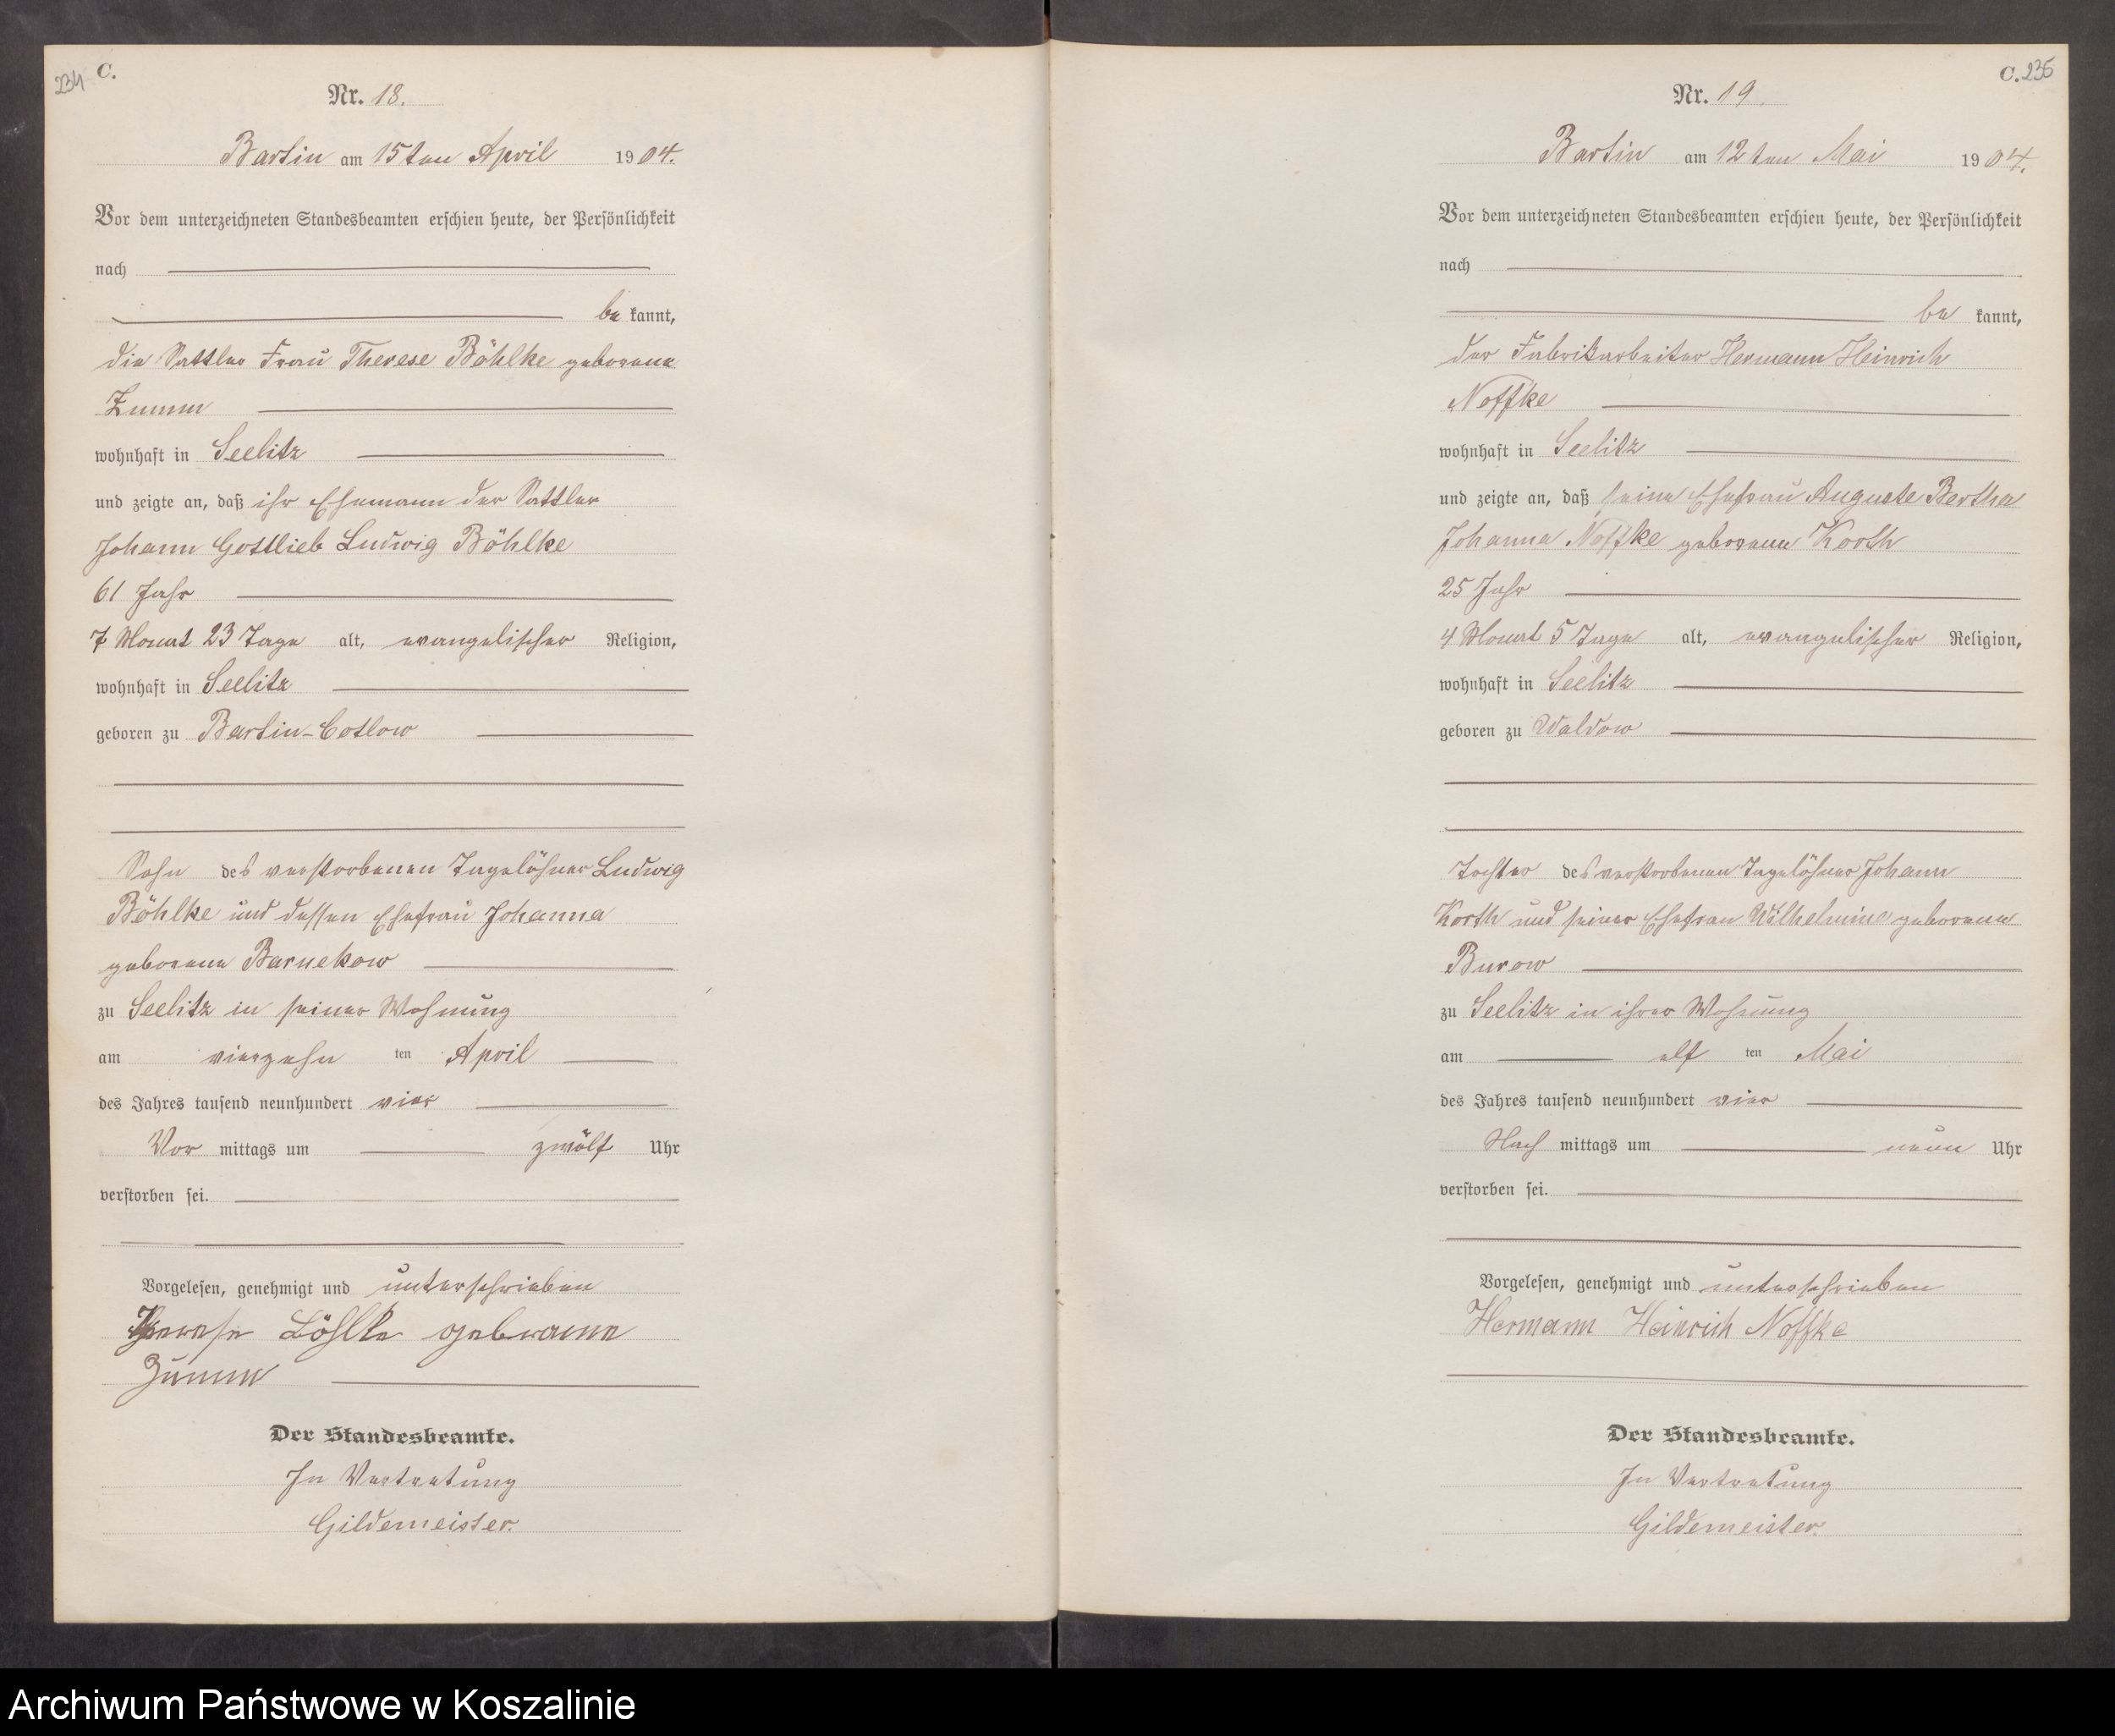 234
C.
Nr. 18.
Bartin am 15ten April 1904.
Vor dem unterzeichneten Standesbeamten erschien heute, der Persönlichkeit
nach
be kannt,
die Sattler Frau Therese Böhlke geborene
Zumm
wohnhaft in Seelitz
und zeigte an, daß ihr Ehemann der Sattler
Johann Gottlieb Ludwig Böhlke
61 Jahr
7 Monat 23 Tage alt, evangelischer Religion,
wohnhaft in Seelitz
geboren zu Bartin-Cotlow
Sohn des verstorbenen Tagelöhner Ludwig
Böhlke und dessen Ehefrau Johanna
geborene Barnekow
zu Seelitz in seiner Wohnung
am vierzehn ten April
des Jahres tausend neunhundert vier
Vor mittags um zwölf Uhr
verstorben sei.
Vorgelesen, genehmigt und unterschrieben
Therese Böhlke geborene
Zumm
Der Standesbeamte.
In Vertretung
Gildemeister.
C. 235
Nr. 19.
Bartin am 12ten Mai 1904.
Vor dem unterzeichneten Standesbeamten erschien heute, der Persönlichkeit
nach
be kannt,
der Fabrikarbeiter Hermann Heinrich
Noffke
wohnhaft in Seelitz
und zeigte an, daß seine Ehefrau Auguste Bertha
Johanna Noffke geborene Korth
25 Jahr
4 Monat 5 Tage alt, evangelischer Religion,
wohnhaft in Seelitz
geboren zu Waldow
Tochter des verstorbenen Tagelöhner Johann
Korth und seiner Ehefrau Wilhelmine geborene
Burow
zu Seelitz in ihrer Wohnung
am elf ten Mai
des Jahres tausend neunhundert vier
Nach mittags um neun Uhr
verstorben sei.
Vorgelesen, genehmigt und unterschrieben
Hermann Heinrich Noffke
Der Standesbeamte.
In Vertretung
Gildemeister.
Archiwum Państwowe w Koszalinie